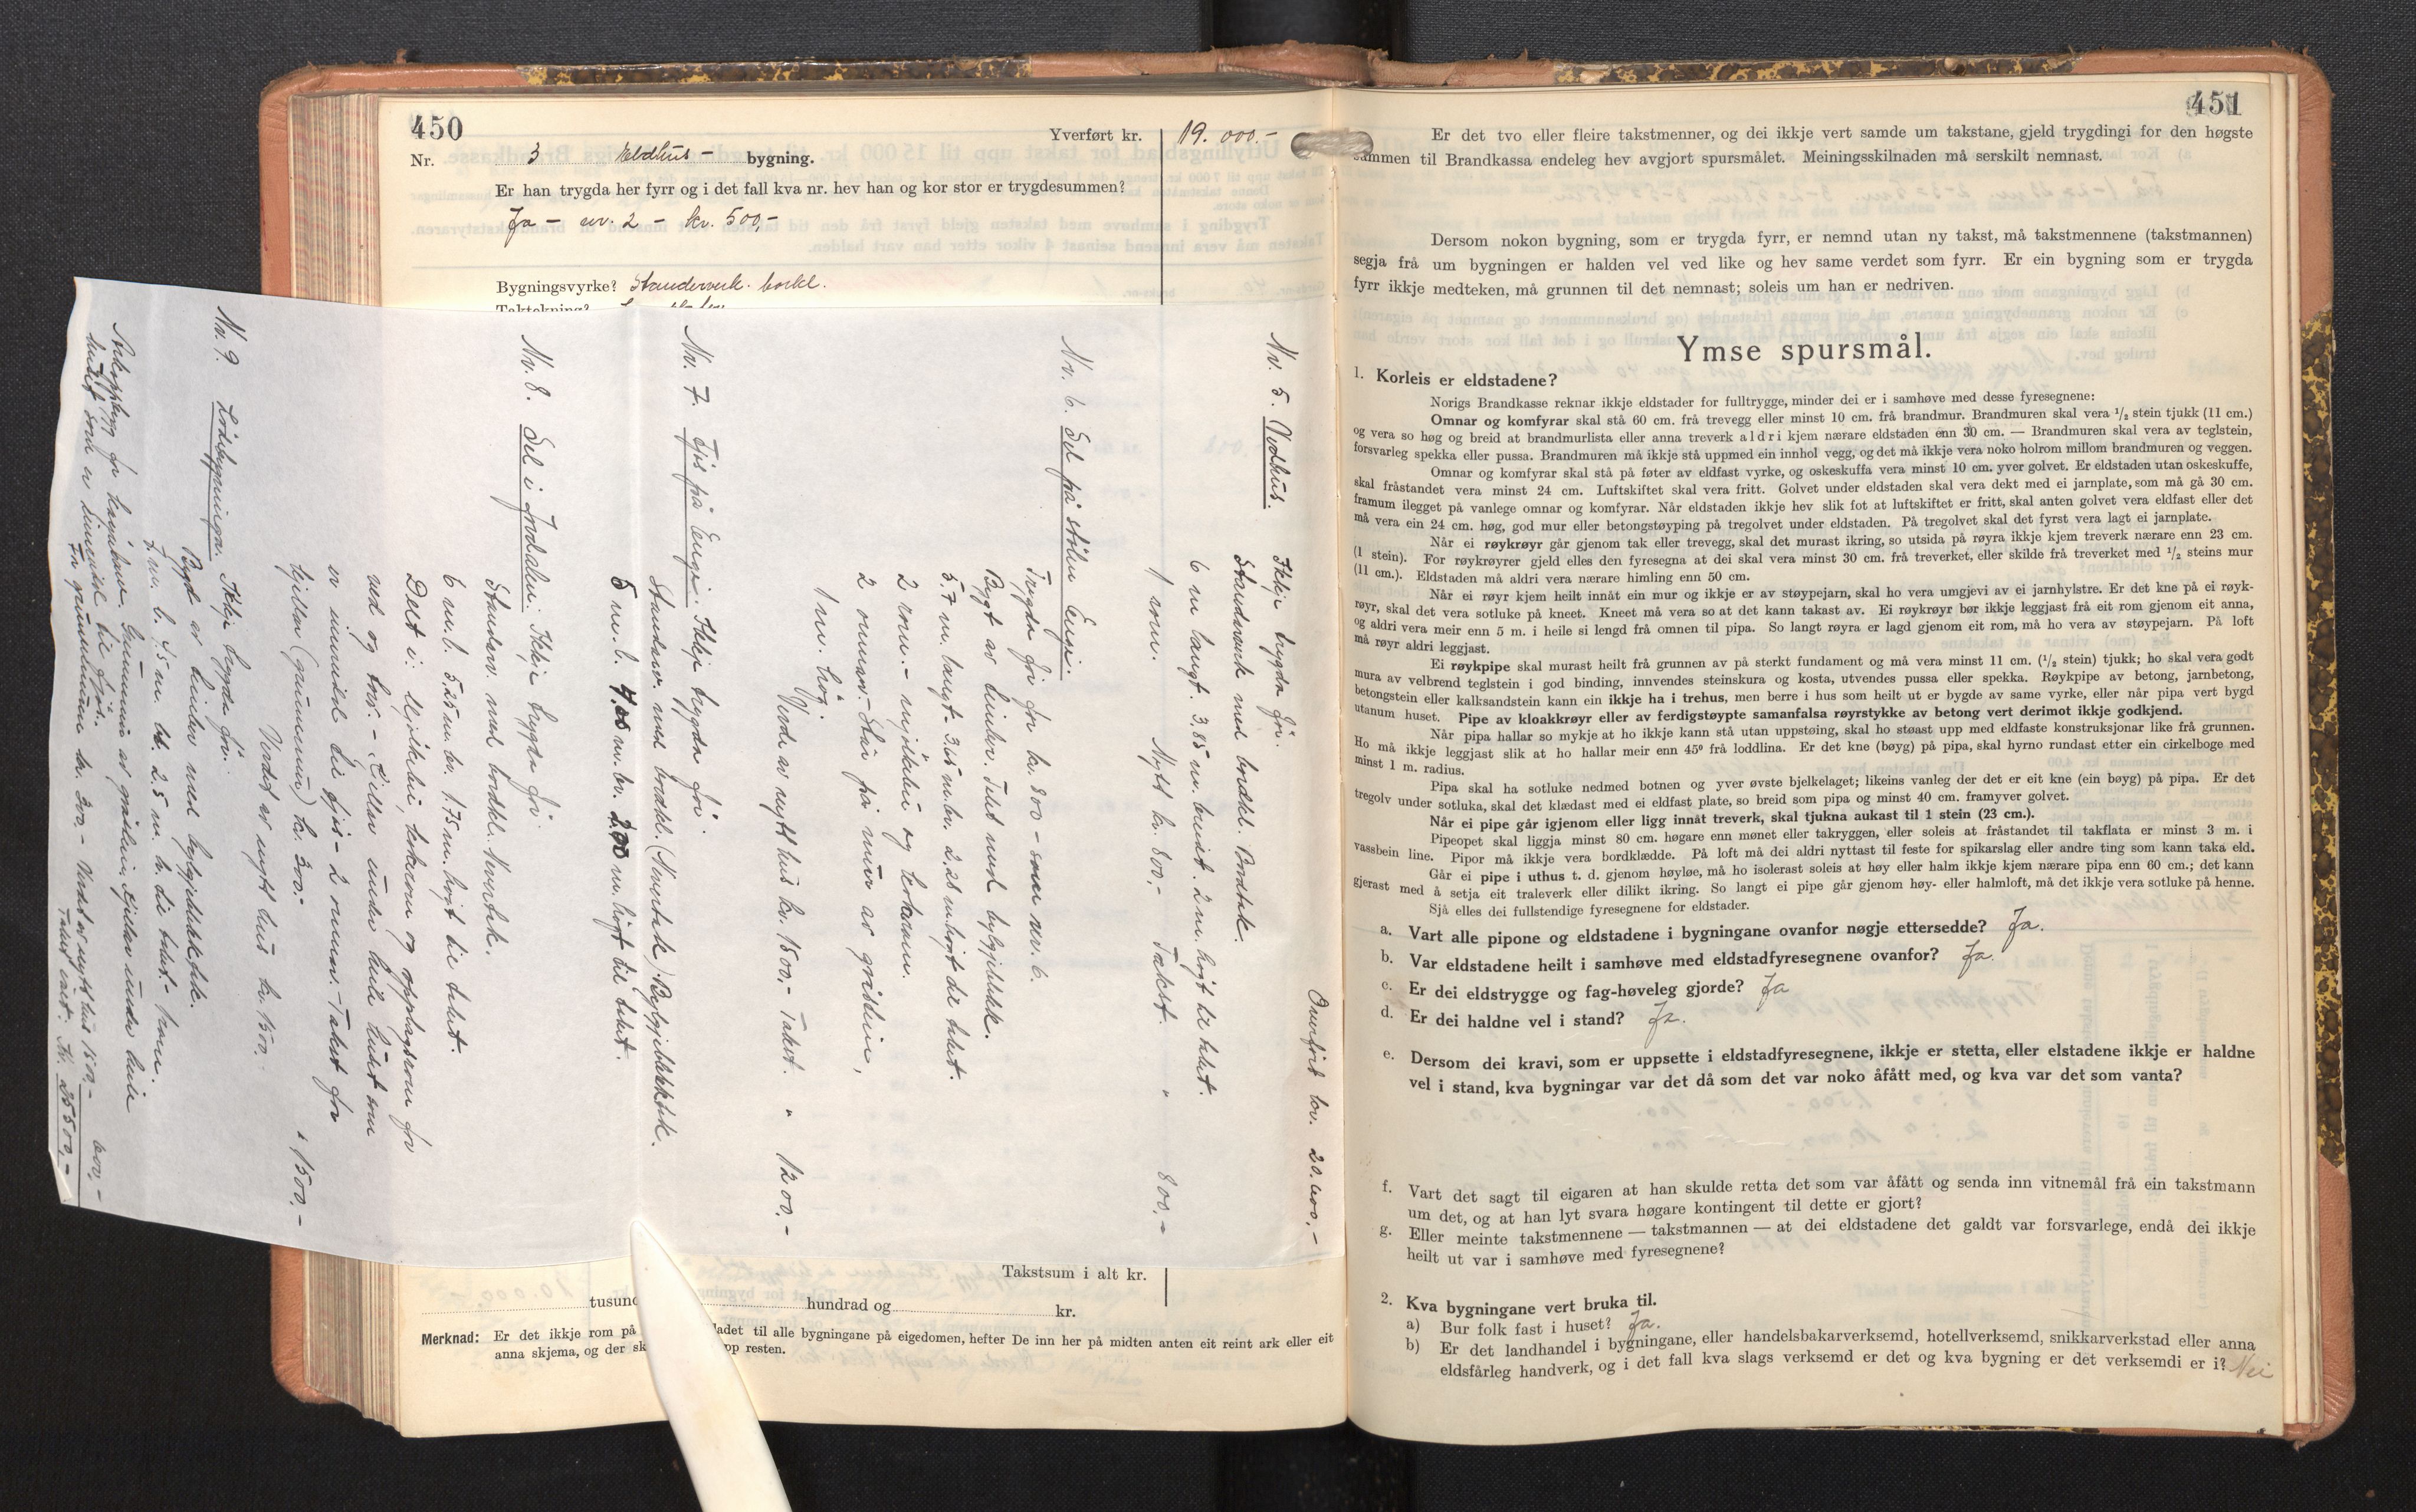 450
Yverført kr. 19.000.-
Nr. 3 Eldhus- bygning.
Er han trygda her fyrr og i det fall kva nr. hev han og kor stor er trygdesummen?
Ja - nr. 2 - kr. 500,-
Bygningsvyrke? Standerverk. bordkl.
Taktekning?
Overført kr. 20.400,-
Nr. 5. Vedhus. Ikkje trygda før.
Standerverk med bordkl. Bordtak.
6 m langt. 3,85 m. breidt. 2 m. høgt til tekut.
1 rom. Nytt kr. 800,- Takst. " 800,-
Nr. 6. Sel på stølen Engi.
Trygda før for kr. 800 - nr. 6.
Bygt av timber. Tekt med bylgjeblekk.
5.7 m. langt - 3.65 m. br. 2.28 m. høgt til tekut.
2 rom. - mjølkebu og kokarom.
2 omnar. - Står på mur av gråstein,
1 m. høg.
Verde av nytt hus kr. 1500,- Takst. " 1200,-
Nr. 7. Fjøs på Engi. Ikkje trygda før.
Standarv. med bordkl. (Novertak) Bylgjeblekktak.
5 m. l. 4.00 m. br. 2.00 m. høgt til tekut.
Nr. 8. Sel i Frodalen: Ikkje trygda før.
Standarv. med bordkl. Novertak.
6 m. l. 5,25 m. br. 1.75 m. høgt til tekut.
Det i: Mjølkebu, kokerom og opplagsrom for
ved og torv. - Kjellar under heile huset som
er innreidd til fjøs - 2 romm. - Takst for
kjellar (grunnmur) kr. 300.-
Verdet av nytt hus kr. 1500. " 1500.-
Nr. 9. Lødebygninga. Ikkje trygda før.
Bygd av timber med bylgjeblekktak.
7 m. l. 4.5 m. br. 2.5 m. h. til tekut.
Grunnmur av gråstein. Kjellar under heile
huset som er innreidd til fjøs.
For grunnmuren kr. 300.- Verdet av nytt hus 1500.-
Takst i alt: Kr. 25500,-
Takstsum i alt kr.
tusund hundrad og kr.
Merknad: Er det ikkje rom på ladet til alle bygningane på eigedomen, hefter De inn her på midten anten eit reint ark eller eit
anna skjema, og der sk pp resten.
451
Er det tvo eller fleire takstmenner, og dei ikkje vert samde um takstane, gjeld trygdingi for den høgste
summen til Brandkassa endeleg hev avgjort spursmålet. Meiningsskilnaden må serskilt nemnast.
Dersom nokon bygning, som er trygda fyrr, er nemnd utan ny takst, må takstmennene (takstmannen)
segja frå um bygningen er halden vel ved like og hev same verdet som fyrr. Er ein bygning som er trygda
fyrr ikkje medteken, må grunnen til det nemnast; soleis um han er nedriven.
Ymse spursmål.
1. Korleis er eldstadene?
Norigs Brandkasse reknar ikkje eldstader for fulltrygge, minder dei er i samhøve med desse fyresegnene:
Omnar og komfyrar skal stå 60 cm. frå trevegg eller minst 10 cm. frå brandmur. Brandmuren skal vera 1/2 stein tjukk (11 cm.)
og vera so høg og breid at brandmurlista eller anna treverk aldri kjem nærare eldstaden enn 30 cm. — Brandmuren skal vera av teglstein,
forsvarleg spekka eller pussa. Brandmuren må ikkje stå uppmed ein innhol vegg, og det må ikkje vera noko holrom millom brandmuren og veggen.
Omnar og komfyrar skal stå på føter av eldfast vyrke, og oskeskuffa vera minst 10 cm. yver golvet. Er eldstaden utan oskeskuffe,
skal fråstandet vera minst 24 cm. Luftskiftet skal vera fritt. Golvet under eldstaden skal vera dekt med ei jarnplate, som må gå 30 cm.
framum ilegget på vanlege omnar og komfyrar. Når eldstaden ikkje hev slik fot at luftskiftet er fritt, skal anten golvet vera eldfast eller det
må vera ein 24 cm. høg, god mur eller betongstøyping på tregolvet under eldstaden. På tregolvet skal det fyrst vera lagt ei jarnplate.
Når ei røykrøyr går gjenom tak eller trevegg, skal det murast ikring, so utsida på røyra ikkje kjem treverk nærare enn 23 cm.
(1 stein). For røykrøyrer gjeld elles den fyresegna at dei skal vera minst 30 cm. frå treverket, eller skilde frå treverket med 1/2 steins mur
(11 cm.). Eldstaden må aldri vera nærare himling enn 50 cm.
Når ei røyr kjem heilt innåt ein mur og ikkje er av støypejarn, skal ho vera umgjevi av ei jarnhylstre. Er det kne på ei røyk-
røyr, skal det vera sotluke på kneet. Kneet må vera so at det kann takast av. Ei røykrøyr bør ikkje leggjast frå eit rom gjenom eit anna,
og aldri vera meir enn 5 m. i heile si lengd frå omnen til pipa. So langt røyra er lagd gjenom eit rom, må ho vera av støypejarn. På loft
må røyr aldri leggjast.
Ei røykpipe skal murast heilt frå grunnen av på sterkt fundament og må vera minst 11 cm. (1/2 stein) tjukk; ho skal vera godt
mura av velbrend teglstein i god binding, innvendes steinskura og kosta, utvendes pussa eller spekka. Røykpipe av betong, jarnbetong,
betongstein eller kalksandstein kann ein ikkje ha i trehus, men berre i hus som heilt ut er bygde av same vyrke, eller når pipa vert bygd
utanum huset. Pipe av kloakkrøyr eller av ferdigstøypte samanfalsa røyrstykke av betong vert derimot ikkje godkjend.
Når pipa hallar so mykje at ho ikkje kann stå utan uppstøing, skal ho støast upp med eldfaste konstruksjonar like frå grunnen.
Ho må ikkje leggjast slik at ho hallar meir enn 45° frå loddlina. Er det kne (bøyg) på pipa, skal hyrno rundast etter ein cirkelboge med
minst 1 m. radius.
Pipa skal ha sotluke nedmed botnen og yver øvste bjelkelaget; likeins vanleg der det er eit kne (ein bøyg) på pipa. Er det
tregolv under sotluka, skal det klædast med ei eldfast plate, so breid som pipa og minst 40 cm. framyver golvet.
Når ei pipe går igjenom eller ligg innåt treverk, skal tjukna aukast til 1 stein (23 cm.).
Pipeopet skal liggja minst 80 cm. høgare enn mønet eller takryggen, eller soleis at fråstandet til takflata er minst 3 m. i
vassbein line. Pipor må ikkje vera bordklædde. På loft må dei aldri nyttast til feste for spikarslag eller andre ting som kann taka eld.
Går ei pipe i uthus t. d. gjenom høyløe, må ho isolerast soleis at høy eller halm ikkje kjem nærare pipa enn 60 cm.; det kann
gjerast med å setja eit traleverk eller dilikt ikring. So langt ei pipe går gjenom høy- eller halmloft, må det ikkje vera sotluke på henne.
Sjå elles dei fullstendige fyresegnene for eldstader.
a. Vart alle pipone og eldstadene i bygningane ovanfor nøgje ettersedde? Ja.
b. Var eldstadene heilt i samhøve med eldstadfyresegnene ovanfor? Ja.
c. Er dei eldstrygge og fag-høveleg gjorde? Ja
d. Er dei haldne vel i stand? Ja.
e. Dersom dei kravi, som er uppsette i eldstadfyresegnene, ikkje er stetta, eller elstadene ikkje er haldne
vel i stand, kva bygningar var det då som det var noko åfått med, og kva var det som vanta?
f. Vart det sagt til eigaren at han skulde retta det som var åfått og senda inn vitnemål frå ein takstmann
um det, og at han lyt svara høgare kontingent til dette er gjort?
g. Eller meinte takstmennene — takstmannen — at dei eldstadene det galdt var forsvarlege, endå dei ikkje
heilt ut var i samhøve med fyresegnene?
2. Kva bygningane vert bruka til.
a) Bur folk fast i huset? Ja.
b) Er det landhandel i bygningane, eller handelsbakarverksemd, hotellverksemd, snikkarverkstad eller anna
eldsfårleg handverk, og i det fall kva slags verksemd er det og kva bygning er det verksemdi er i? Nei